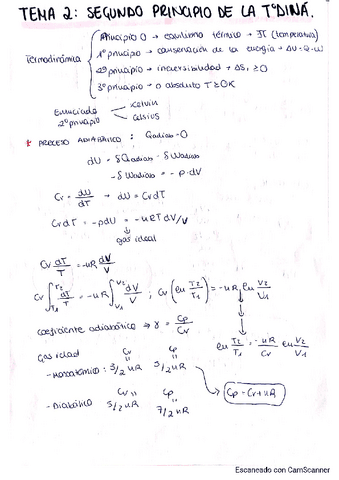 TEMA 2: SEGUNDO PRINCIPIO DE LA TªDINÁ.
Termodinámica
Principio 0 → equilibrio térmico → ∃T (temperatura)
1º principio → conservación de la energía → ΔU=Q-W
2º principio → irreversibilidad → ΔS ≥ 0
3º principio → 0 absoluto T≥0K
Enunciado 2º principio
Kelvin
Celsius
* PROCESO ADIABÁTICO: Qadiab=0
dU = δQadiab - δWadiab
-δWadiab = -p·dV
Cv = dU/dT → dU = CvdT
CvdT = -pdV = -nRT dV/V
↓
gas ideal
Cv dT/T = -nR dV/V
Cv ∫T1 T2 dT/T = -nR ∫V1 V2 dV/V ; Cv (ln T2/T1) = -nR ln V2/V1
coeficiente adiabático → γ = Cp/Cv
ln T2/T1 = -nR/Cv ln V2/V1
gas ideal Cv Cp
-Monoatómico: 3/2 nR 5/2 nR
Cp = Cv+nR
-Diatómico Cv = 5/2 nR Cp = 7/2 nR
Escaneado con CamScanner